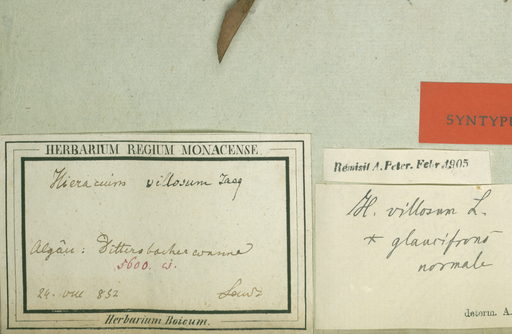 SYNTYPE
HERBARIUM REGIUM MONACENSE.
Hieracium villosum Jacq
Algäu: Dittersbacherwanne
5600. w.
24. 852
Herbarium Boicum.
Remisit A. Peter. Febr. 1905
H. villosum L.
* glaucifrons
normale
determ. A.